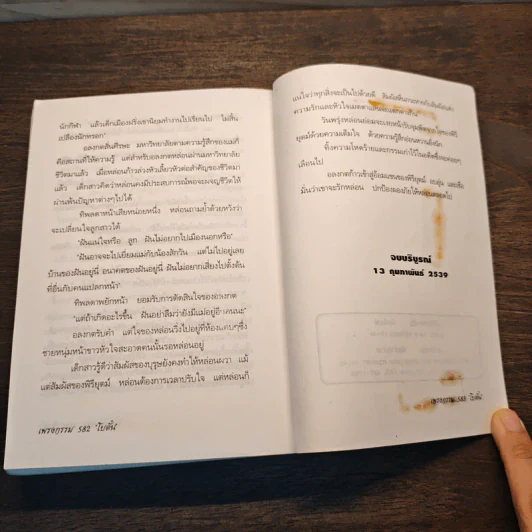 นักกีฬา แล้วเด็กเมืองฝรั่งเขานิยมทำงานไปเรียนไป ไม่สิ้น
เปลืองนักหรอก"
อลงกตสั่นศีรษะ มหาวิทยาลัยตามความรู้สึกของแม่ก็
คือสถานที่ให้ความรู้ แต่สำหรับอลงกตหล่อนผ่านมหาวิทยาลัย
ชีวิตมาแล้ว เมื่อหล่อนก้าวล่วงหัวเลี้ยวหัวต่อสำคัญของชีวิตมา
แล้ว เด็กสาวคิดว่าหล่อนคงมีประสบการณ์พอจะผจญชีวิตให้
ผ่านพ้นปัญหาต่างๆไปได้
ทิพลดาหน้าเสียหน่อยหนึ่ง หล่อนถามย้ำด้วยหวังว่า
จะเปลี่ยนใจลูกสาวได้
"ฝันแน่ใจหรือ ลูก ฝันไม่อยากไปเมืองนอกหรือ"
"ฝันอาจจะไปเยี่ยมแม่กับน้องสักวัน แต่ไม่ไปอยู่เลย
บ้านของฝันอยู่นี่ อนาคตของฝันอยู่นี่ ฝันไม่อยากเสี่ยงไปตั้งต้น
ที่อื่นกับคนแปลกหน้า"
ทิพลดาพยักหน้า ยอมรับการตัดสินใจของอลงกต
"แต่ถ้าเกิดอะไรขึ้น ฝันอย่าลืมว่ายังมีแม่อยู่อีกคนนะ"
อลงกตรับคำ แต่ใจของหล่อนวิ่งไปอยู่ที่ห้องแคบๆซึ่ง
ชายหนุ่มหน้าขาวหัวใจสะอาดคนนั้นรอหล่อนอยู่
เด็กสาวรู้ดีว่าสัมผัสของบุรุษยังคงทำให้หล่อนผวา แม้
แต่สัมผัสของพิรียุตม์ หล่อนต้องการเวลาปรับใจ แต่หล่อนก็
เพรงกรรม 582 'โบตั๋น'
แน่ใจว่าทุกสิ่งจะเป็นไปด้วยดี
ความรักและหัวใจเมตตา
วันพรุ่งหล่อนย่อมจะ
ยุตม์ด้วยความเต็มใจ ด้วยความรู้สึก
ทั้งความโหดร้ายและกรรมเก่าไว้ในอดีต
เลือนไป
อลงกตก้าวเข้าสู่อ้อมแขนของพิรียุตม์ อบอุ่น และเชื่อ
มั่นว่าเขาจะรักหล่อน ปกป้องผองภัยให้หล่อนตลอดไป
จบบริบูรณ์
13 กุมภาพันธ์ 2539
เพรงกรรม 583 'โบตั๋น'